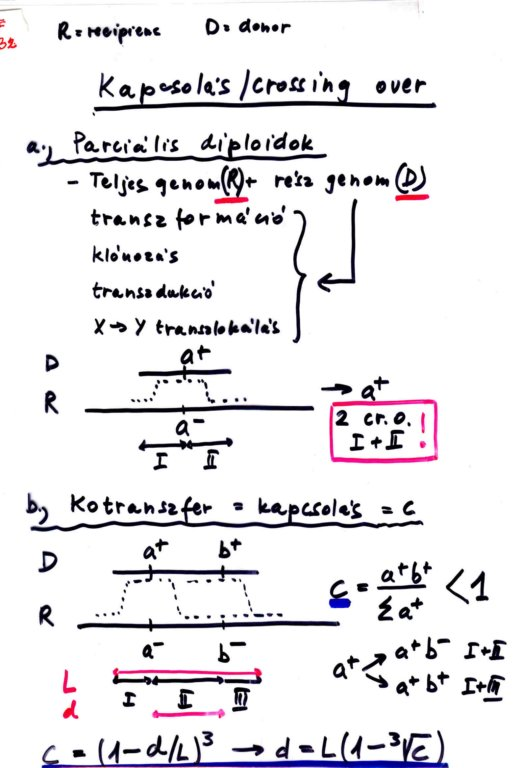 R = recipiens D = donor
32
Kapcsolás/crossing over
a., Parciális diploidok
- Teljes genom (R) + rész genom (D)
transzformáció
klónozás
transzdukció
X → Y transzlokálás
D a+
R → a+
a-
2 cr.o. !
I + II
I II
b., Kotranszfer = kapcsolás = c
D a+ b+
c = a+b+ / Σa+ < 1
R
a- b-
a+ → a+b- I+II
→ a+b+ I+III
L I II III
d
c = (1-d/L)³ → d = L(1-³√c)